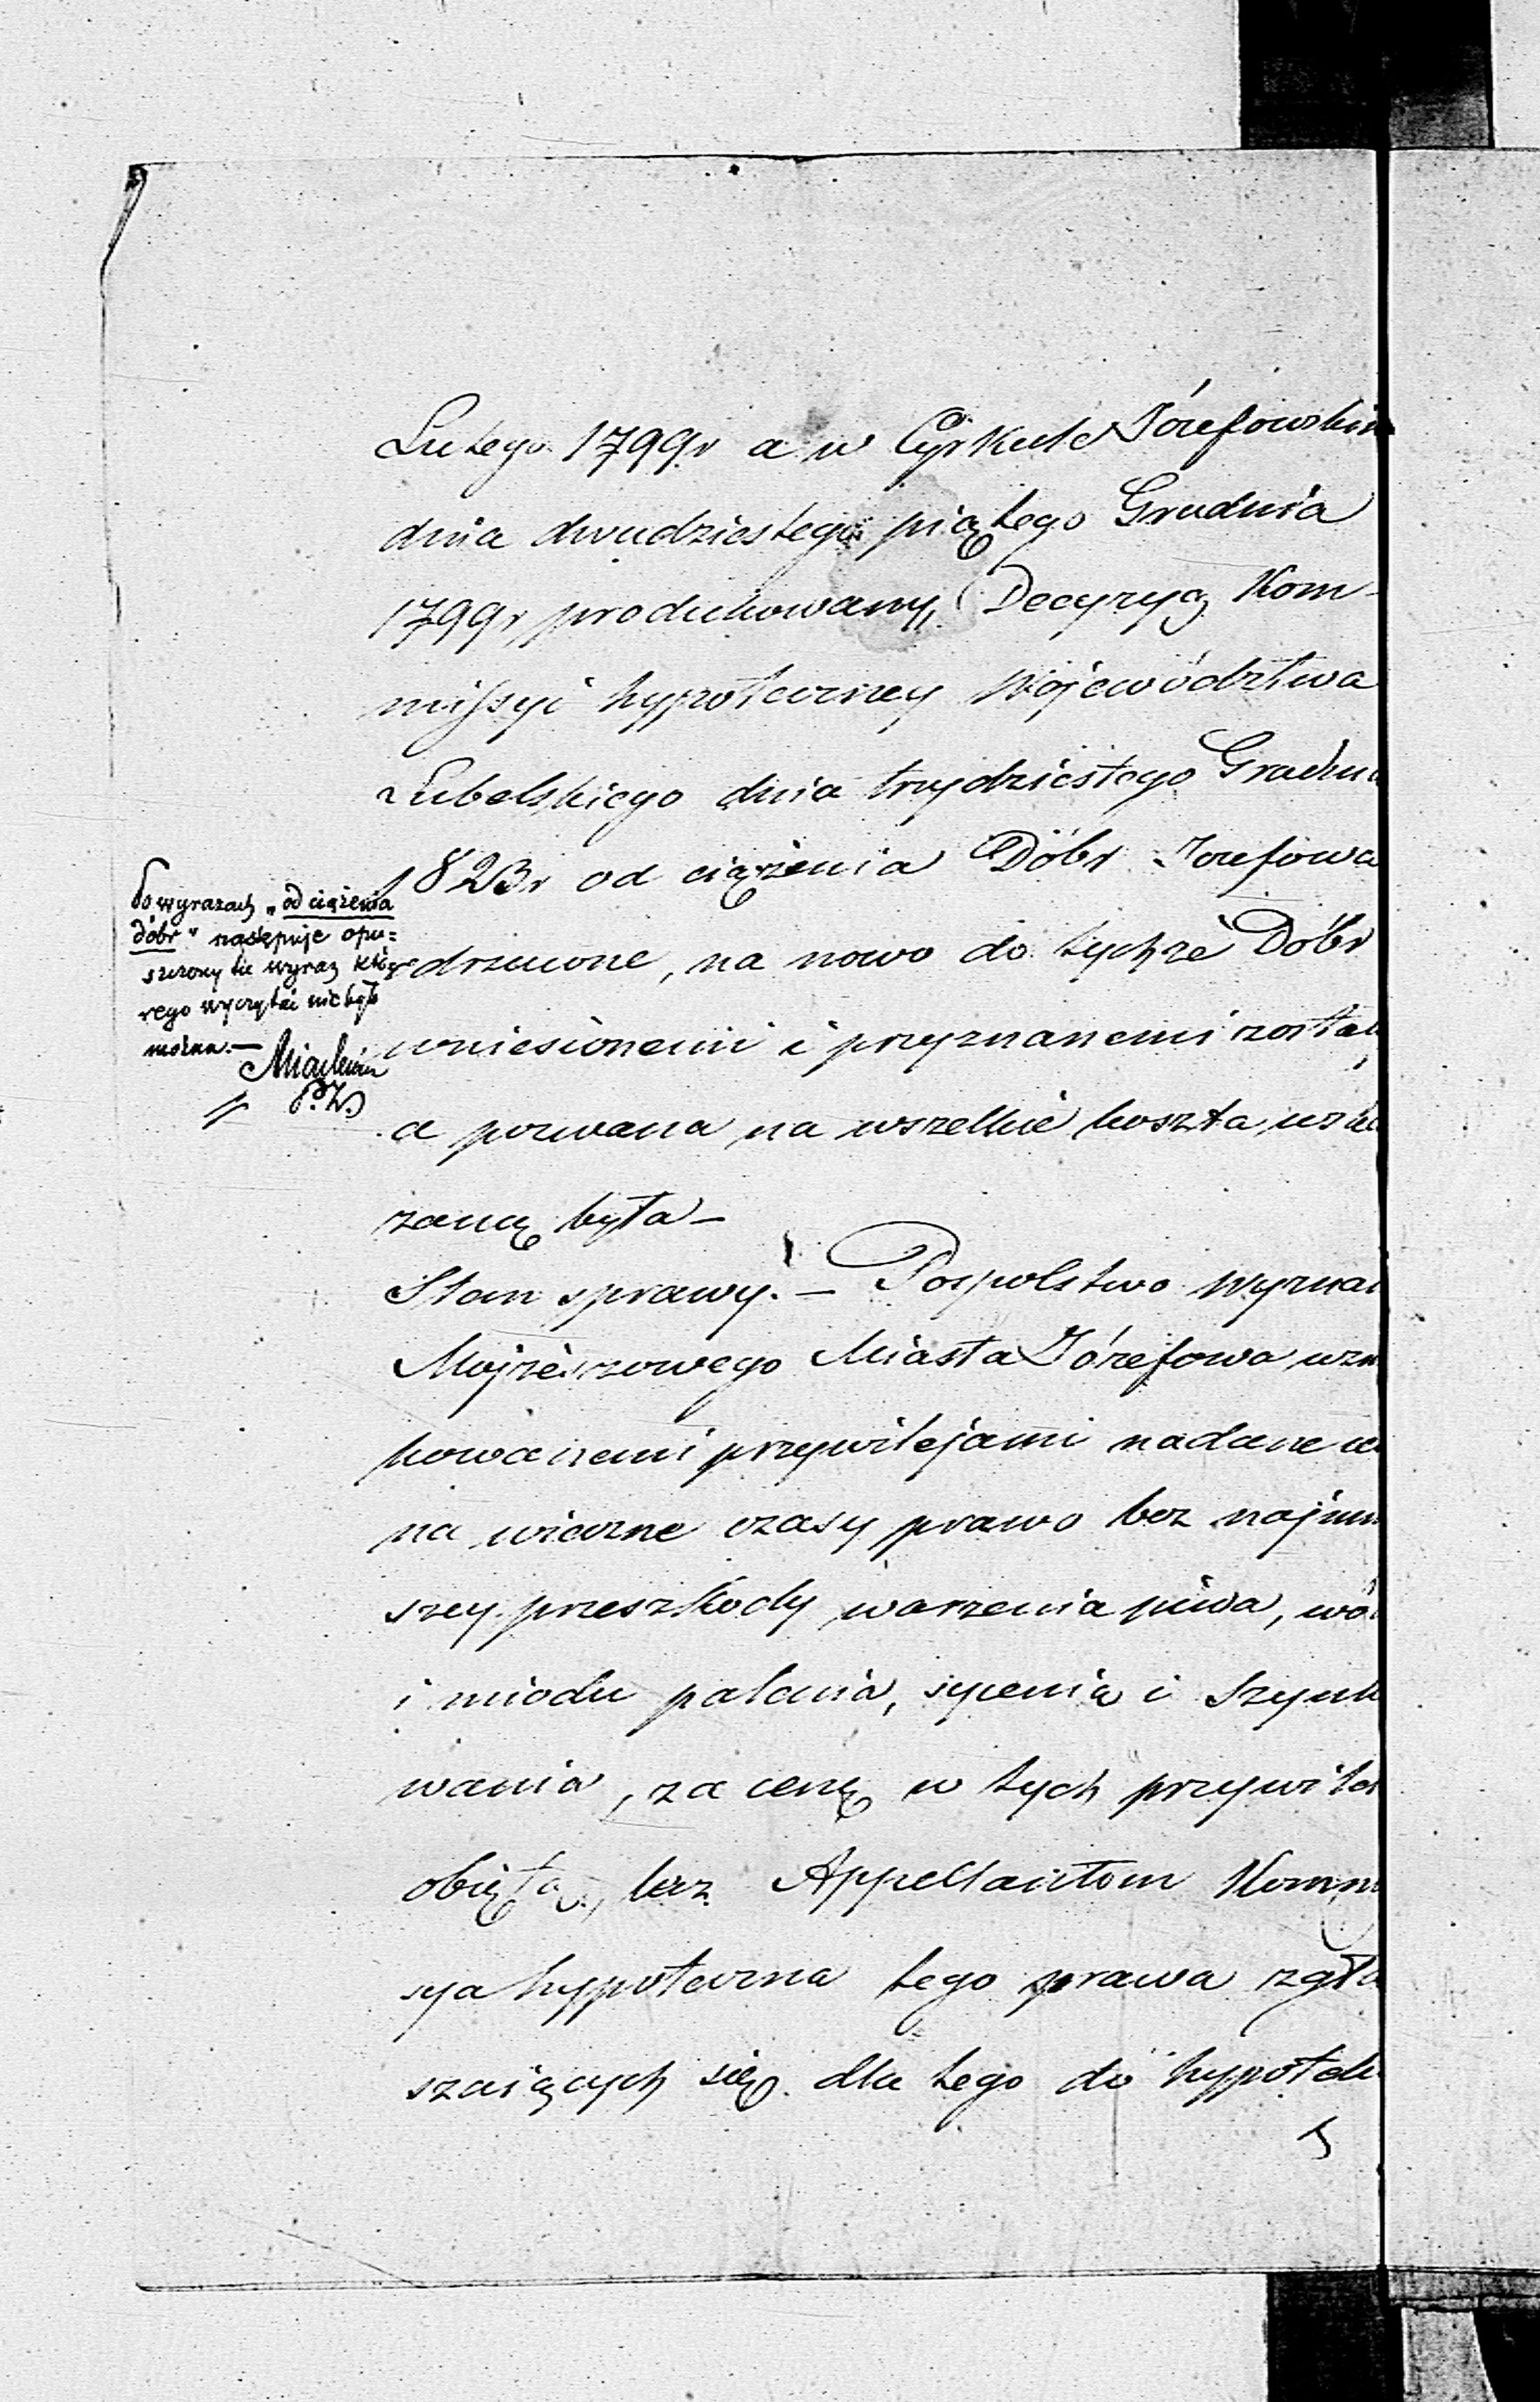 Lutego 1799r a w Cyrkule Józefowskim
dnia dwudziestego piątego Grudnia
1799r produkowany, Decyzyą Kom-
missyi hypoteczney Województwa
Lubelskiego dnia trzydziestego Grudni
1823r od ciążenia Dóbr Jozefowa
odrzucone, na nowo do tychże Dóbr
wniesionemi i przyznanemi zostały
a pozwana na wszelkie koszta wska
zaną była —
Stan sprawy. — Pospolstwo wyznan
Mojżeszowego Miasta Józefowa uzn
kowanemi przywilejami nadane
na wieczne czasy prawo bez najmn
szey przeszkody warzenia piwa, wó
i miodu palenia, sycenia i szynk
wania, za cenę w tych przywile
obiętą, lecz Appellantom Kommi
sya hypoteczna tego prawa zgła
szaiących się dla tego do hypotek
Po wyrazach „od ciążenia
dóbr" następuje opu=
szczony tu wyraz któ=
rego wyczytać nie było
można. —
P.Z.